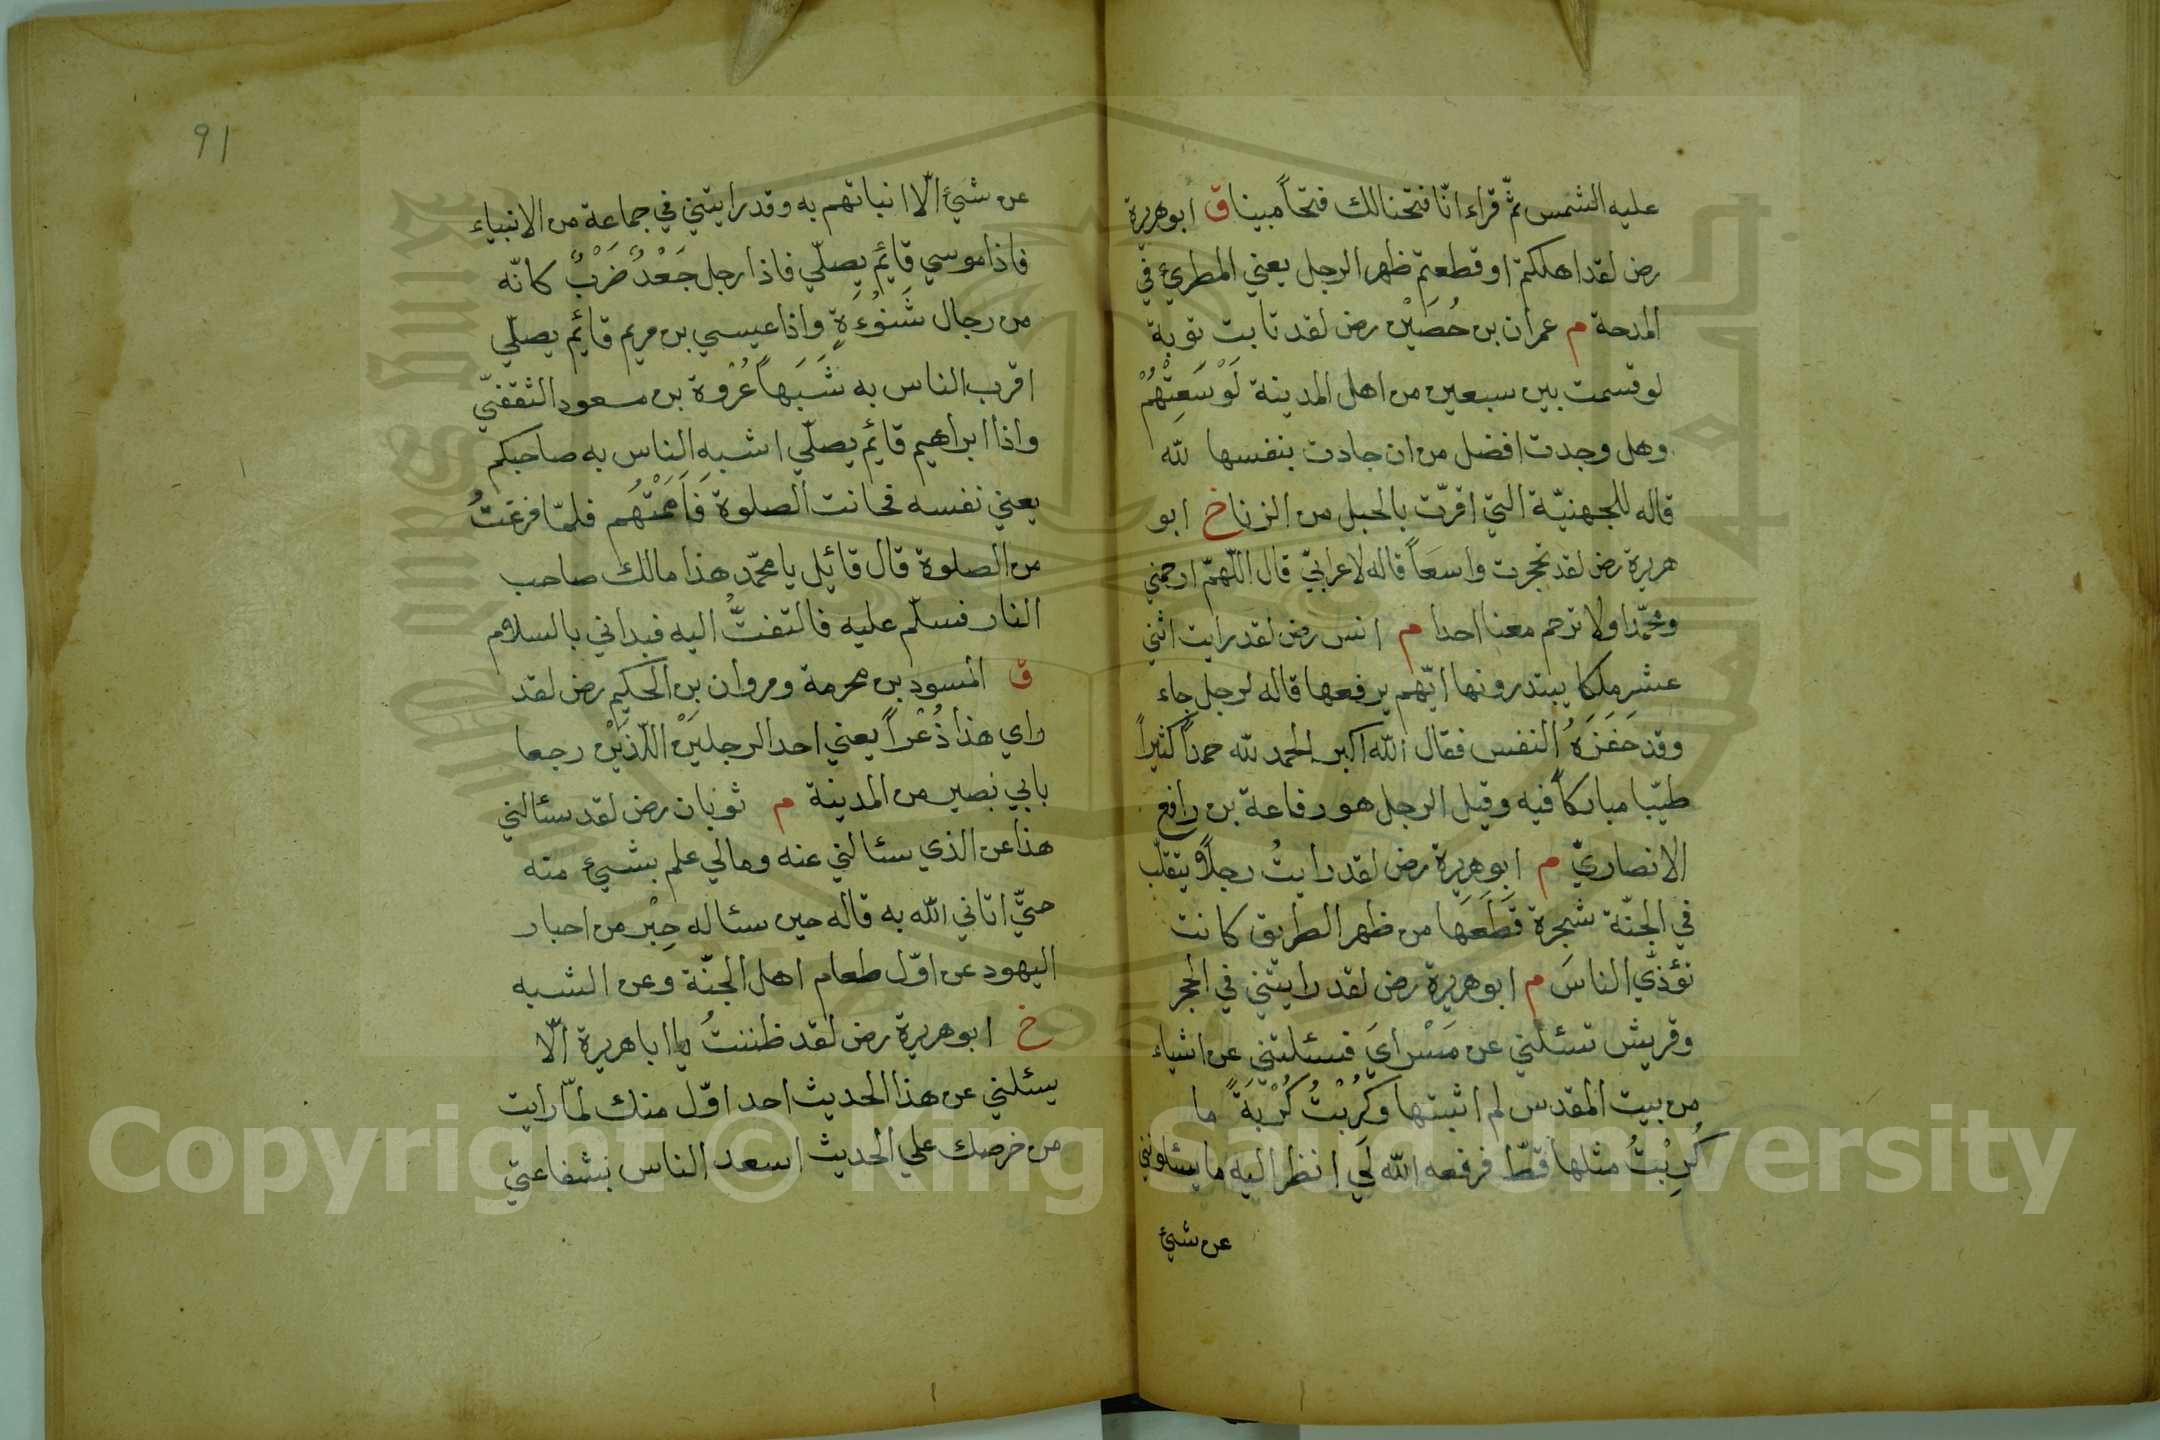 عليه الشمس ثمّ قراء انّا فتحنا لك فتحاً مبينا ق ابو هريرة
رض لقد اهلكتم او قطعتم ظهر الرجل يعني المطريء في
المدحة م عمران بن حُصَيْن رض لقد تابت توبة
لو قسمت بين سبعين من اهل المدينة لَوْسَعِتْهُمْ
وهل وجدت افضل من ان جادت بنفسها لله
قاله للجهنيّة التي اقرّت بالحبل من الزنا خ ابو
هريرة رض لقد تحجرت واسعَاً قاله لاعرابيّ قال اللّهمّ ارحمني
ومحمّدا ولا ترحم معنا احدا م انس رض لقد رايت اثني
عشر ملكا يبتدرونها ايّهم يرفعها قاله لرجل جاء
وقد حَفَزَهُ النفس فقال الله اكبر الحمد لله حمداً كثيراً
طيّبا مباركاً فيه وقيل الرجل هو رفاعة بن رافع
الانصاريّ م ابو هريرة رض لقد رايتُ رجلاً يتقلّب
في الجنّة شجرة قَطَعَها من ظهر الطريق كانت
تؤذي الناسَ م ابو هريرة رض لقد رايتني في الحجر
وقريش تسئلني عن مَسْرايَ فسئلتني عن اشياء
من بيت المقدس لم اثبتها وكُرُبْتُ كُرْبَةً ما
كُرِبْتُ مثلها قطّ فرفعه الله لَي انظر اليه ما يسئلونني
عن شئ
91
عن شَئ الّا انباتهم به وقد رايتني في جماعة من الانبياء
فاذا موسي قائم يصلّي فاذا رجل جَعْدٌ ضَرْبٌ كانّه
من رجال شَنُوْءَةٍ واذا عيسي بن مريم قائم يصلّي
اقرب الناس به شَبَهاً عُرْوة بن مسعود الثقفيّ
واذا ابراهيم قائم يصلّي اشبه الناس به صاحبكم
يعني نفسه فحانت الصلوة فَاَمَمْتُهُم فلمّا فرغتُ
من الصلوة قال قائل يا محمّد هذا مالك صاحب
النار فسلّم عليه فالتفتُّ اليه فبداني بالسلام
ق المسود بن محرمة ومروان بن الحكيم رض لقد
راي هذا ذُعْراً يعني احد الرجلَيْن اللّذَيْن رجعا
بابي بصير من المدينة م ثوبان رض لقد سئالني
هذا عن الذي سئالني عنه ومالي علم بشيء منه
حتّي اتاني الله به قاله حين سئاله حِبْر من احبار
اليهود عن اوّل طعام اهل الجنّة وعن الشبه
خ ابو هريرة رض لقد ظننتُ يا ابا هريرة الّا
يسئلني عن هذا الحديث احد اوّل منك لمّا رايت
من خرصك علي الحديث اسعد الناس بشفاعتي
Copyright © King Saud University